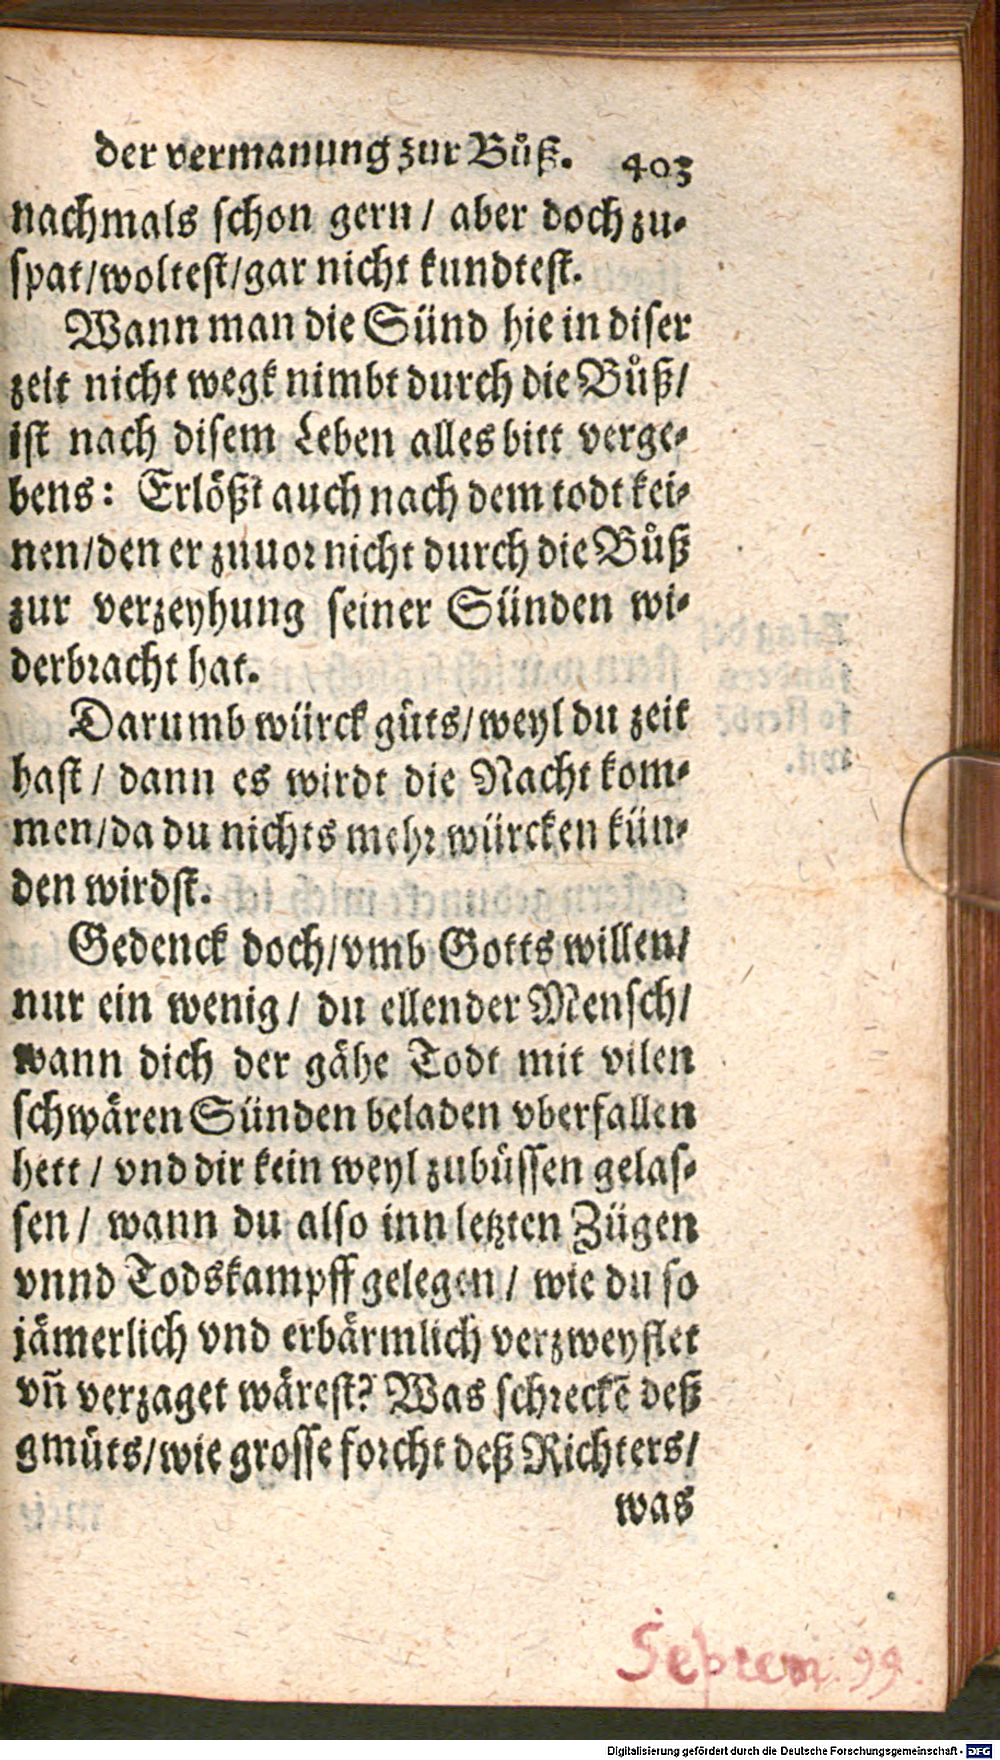 der vermanung zur Bůß. 403
nachmals schon gern / aber doch zu-
spat/woltest/gar nicht kundtest.
Wann man die Sünd hie in diser
zeit nicht wegk nimbt durch die Bůß/
ist nach disem Leben alles bitt verge-
bens: Erlößt auch nach dem todt kei-
nen/den er zuuor nicht durch die Bůß
zur verzeyhung seiner Sünden wi-
derbracht hat.
Darumb würck gůts/weyl du zeit
hast / dann es wirdt die Nacht kom-
men/da du nichts mehr würcken kün-
den wirdst.
Gedenck doch/vmb Gotts willen/
nur ein wenig / du ellender Mensch/
wann dich der gähe Todt mit vilen
schwären Sünden beladen vberfallen
hett / vnd dir kein weyl zubüssen gelas-
sen / wann du also inn letzten Zügen
vnnd Todskampff gelegen / wie du so
jämerlich vnd erbärmlich verzweyflet
vñ verzaget wärest? Was schreckē deß
gmüts/wie grosse forcht deß Richters/
was
Septem. 99.
Digitalisierung gefördert durch die Deutsche Forschungsgemeinschaft - DFG